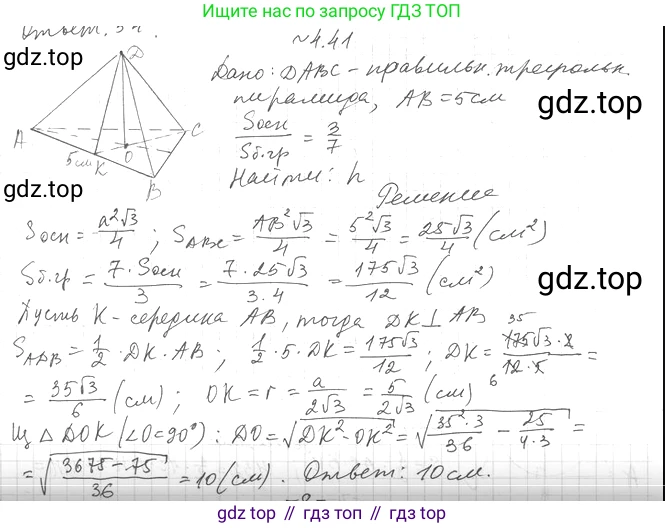 Ищите нас по запросу ГДЗ ТОП
Ответ.
№4.41
gdz.top
D
Дано: DABC - правильн. треугольн.
пирамида, AB = 5 см
gdz.top
Sосн / Sб.гр = 3/7
A C
O
5см K
B
gdz.top
Найти: h
Решение
Sосн = a²√3/4 ; S_ABC = AB²√3/4 = 5²√3/4 = 25√3/4 (см²)
Sб.гр = 7·Sосн/3 = 7·25√3/3·4 = 175√3/12 (см²)
gdz.top
Пусть K - середина AB, тогда DK ⊥ AB
S_ADB = 1/2 · DK · AB ; 1/2 · 5 · DK = 175√3/12 ; DK = 175√3·2/12·5 =
35
6
= 35√3/6 (см) ; OK = r = a/2√3 = 5/2√3 (см)
Из △DOK (∠O=90°) : DO = √(DK² - OK²) = √(35²·3/36 - 25/4·3) =
= √(3675-75/36) = 10 (см). Ответ: 10 см.
gdz.top // гдз топ // gdz.top // гдз топ